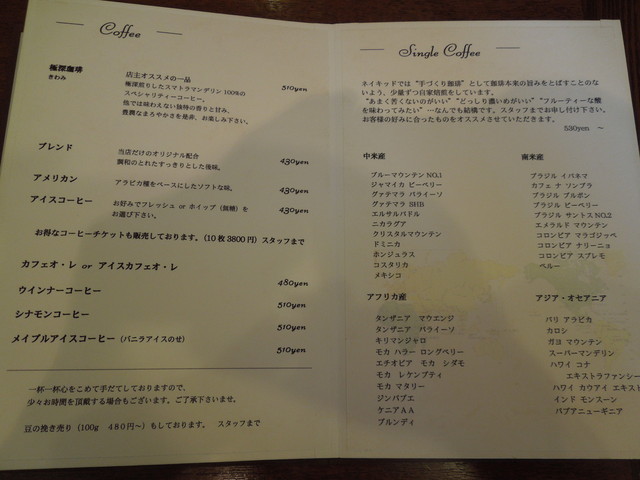 Coffee
極深珈琲
きわみ
店主オススメの一品
極深煎りしたスマトラマンデリン 100%の
スペシャリティーコーヒー。
他では味わえない独特の香りと甘み、
豊潤なまろやかさを是非、お楽しみ下さい。
510yen
ブレンド
当店だけのオリジナル配合
調和のとれたすっきりとした後味。
430yen
アメリカン
アラビカ種をベースにしたソフトな味。
430yen
アイスコーヒー
お好みでフレッシュ or ホイップ（無糖）を
お選び下さい。
430yen
お得なコーヒーチケットも販売しております。(10 枚 3800 円) スタッフまで
カフェオ・レ or アイスカフェオ・レ
480yen
ウインナーコーヒー
510yen
シナモンコーヒー
510yen
メイプルアイスコーヒー（バニラアイスのせ）
510yen
一杯一杯心をこめて手だてしておりますので、
少々お時間を頂戴する場合もございます。ご了承下さいませ。
豆の挽き売り（100g 480円〜）もしております。 スタッフまで
Single Coffee
ネイキッドでは“手づくり珈琲”として珈琲本来の旨みをとばすことのな
いよう、少量ずつ自家焙煎をしています。
“あまく苦くないのがいい”“どっしり濃いめがいい”“フルーティーな酸
を味わってみたい”…なんでも結構です。スタッフまでお申し付け下さい。
お客様の好みに合ったものをオススメさせていただきます。
530yen 〜
中米産
ブルーマウンテン NO.1
ジャマイカ ピーベリー
グァテマラ パライーソ
グァテマラ SHB
エルサルバドル
ニカラグア
クリスタルマウンテン
ドミニカ
ホンジュラス
コスタリカ
メキシコ
南米産
ブラジル イパネマ
カフェ ナ ソンブラ
ブラジル ブルボン
ブラジル ピーベリー
ブラジル サントス NO.2
エメラルド マウンテン
コロンビア マラゴジッペ
コロンビア ナリーニョ
コロンビア スプレモ
ペルー
アフリカ産
タンザニア マウエンジ
タンザニア パライーソ
キリマンジャロ
モカ ハラー ロングベリー
エチオピア モカ シダモ
モカ レケンプティ
モカ マタリー
ジンバブエ
ケニアＡＡ
ブルンディ
アジア・オセアニア
バリ アラビカ
カロシ
ガヨ マウンテン
スーパーマンデリン
ハワイ コナ
エキストラファンシー
ハワイ カウアイ エキスト
インド モンスーン
パプアニューギニア